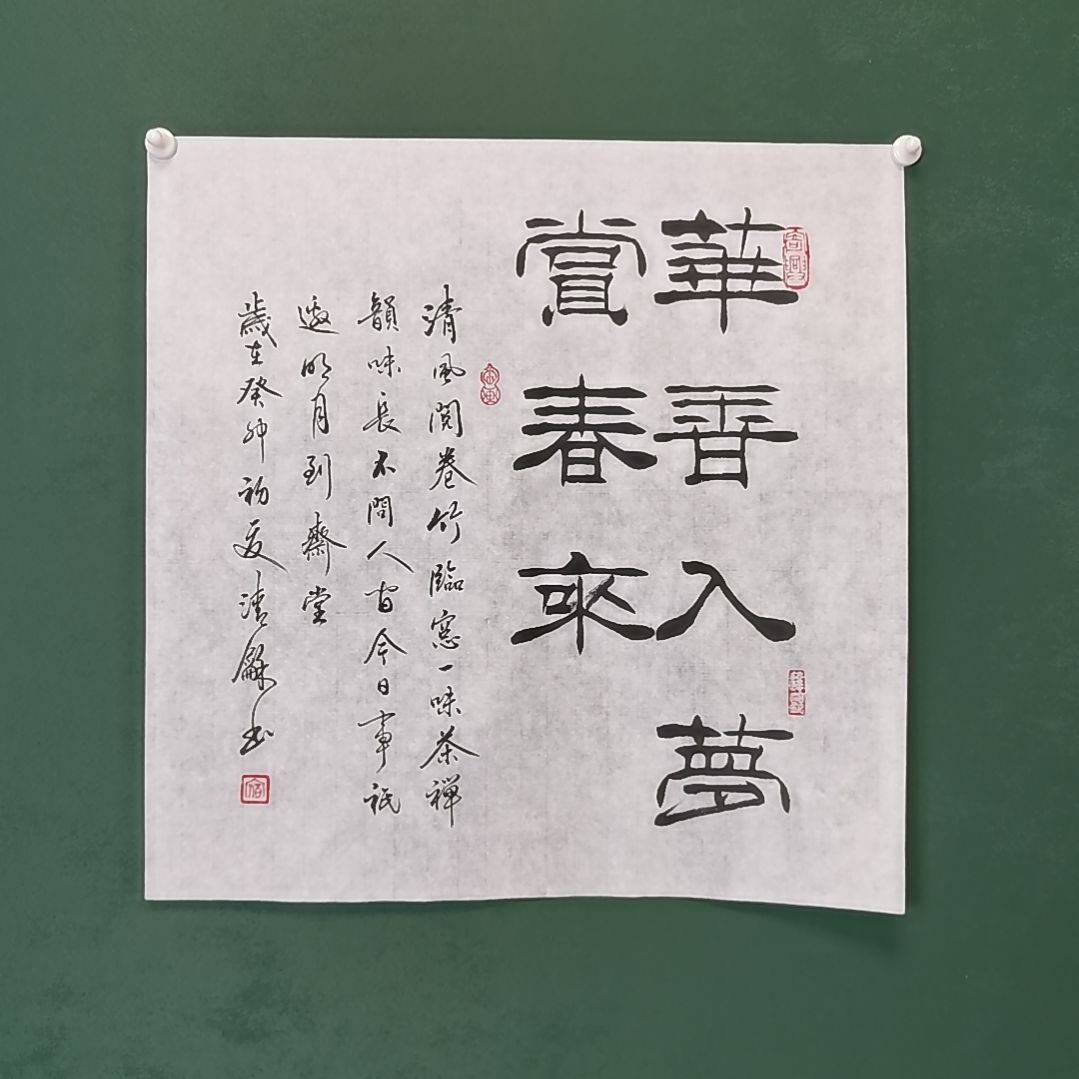 華善入夢
賞春來
清風閱卷竹臨窻一味茶禪
韻味長不問人间今日事祇
邀明月到齋堂
歲在癸卯初夏清龢書